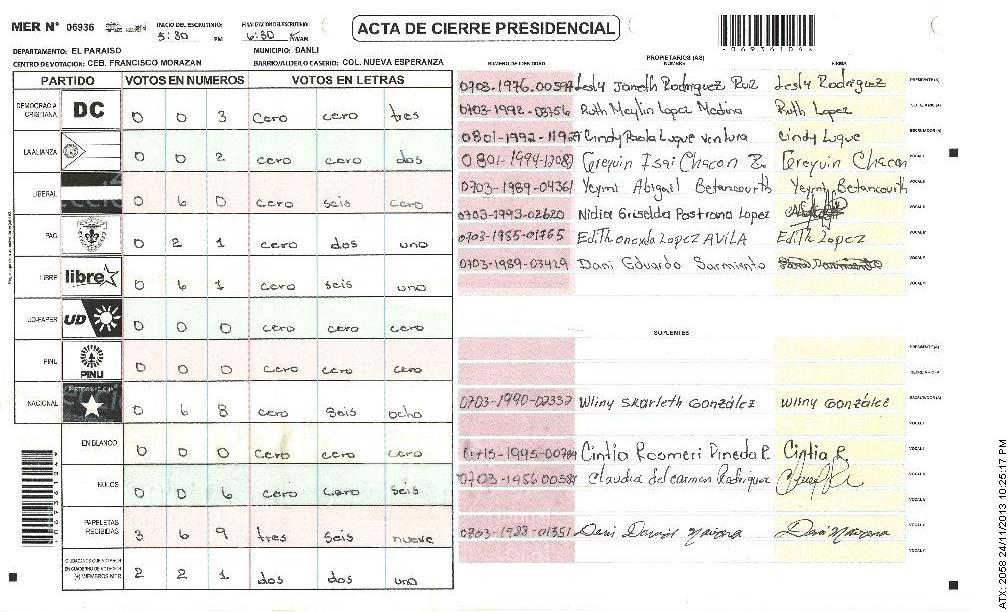 MER N° 06936 INICIO DEL ESCRUTINIO: 5:30 PM FINALIZACION DEL ESCRUTINIO: 6:30 PM/AM ACTA DE CIERRE PRESIDENCIAL
DEPARTAMENTO: EL PARAISO MUNICIPIO: DANLI
CENTRO DE VOTACION: CEB. FRANCISCO MORAZAN BARRIO/ALDEA O CASERIO: COL. NUEVA ESPERANZA
PARTIDO VOTOS EN NUMEROS VOTOS EN LETRAS
DEMOCRACIA CRISTIANA DC 0 0 3 cero cero tres
LA ALIANZA 0 0 2 cero cero dos
LIBERAL 0 6 0 cero seis cero
PAC 0 2 1 cero dos uno
LIBRE libre 0 6 1 cero seis uno
UD-FAPER UD 0 0 0 cero cero cero
PINU PINU 0 0 0 cero cero cero
NACIONAL 0 6 8 cero seis ocho
EN BLANCO 0 0 0 cero cero cero
NULOS 0 0 6 cero cero seis
PAPELETAS RECIBIDAS 3 6 9 tres seis nueve
CIUDADANOS QUE VOTARON EN CUADERNO DE VOTACION (+) MIEMBROS MER 2 2 1 dos dos uno
PROPIETARIOS (AS)
NUMERO DE IDENTIDAD NOMBRE FIRMA
Lesly Janeth Rodriguez Ruiz Lesly Rodriguez PRESIDENTE (A)
0703-1992-03756 Ruth Meylin Lopez Medina Ruth Lopez SECRETARIO (A)
Cindy Paola Luque Ventura Cindy Luque ESCRUTADOR (A)
Isai Chacon Chacon VOCAL I
0703-1989-04361 Yeymi Abigail Betancourth Yeymi Betancourth VOCAL II
0703-1993-02620 Nidia Griselda Pastrana Lopez VOCAL III
0703-1985-01765 Edith oneyda Lopez AVILA Edith Lopez VOCAL IV
0703-1989-03429 Dani Eduardo Sarmiento VOCAL V
VOCAL VI
SUPLENTES
PRESIDENTE (A)
SECRETARIO (A)
0703-1990-02333 Wliny Skarleth González Wliny González ESCRUTADOR (A)
VOCAL I
Cintia Rosmeri Pineda R. Cintia R. VOCAL II
Claudia del carmen Rodriguez VOCAL III
VOCAL IV
0703-1988-01351 VOCAL V
VOCAL VI
0693610
ATX: 2058 24/11/2013 10:25:17 PM